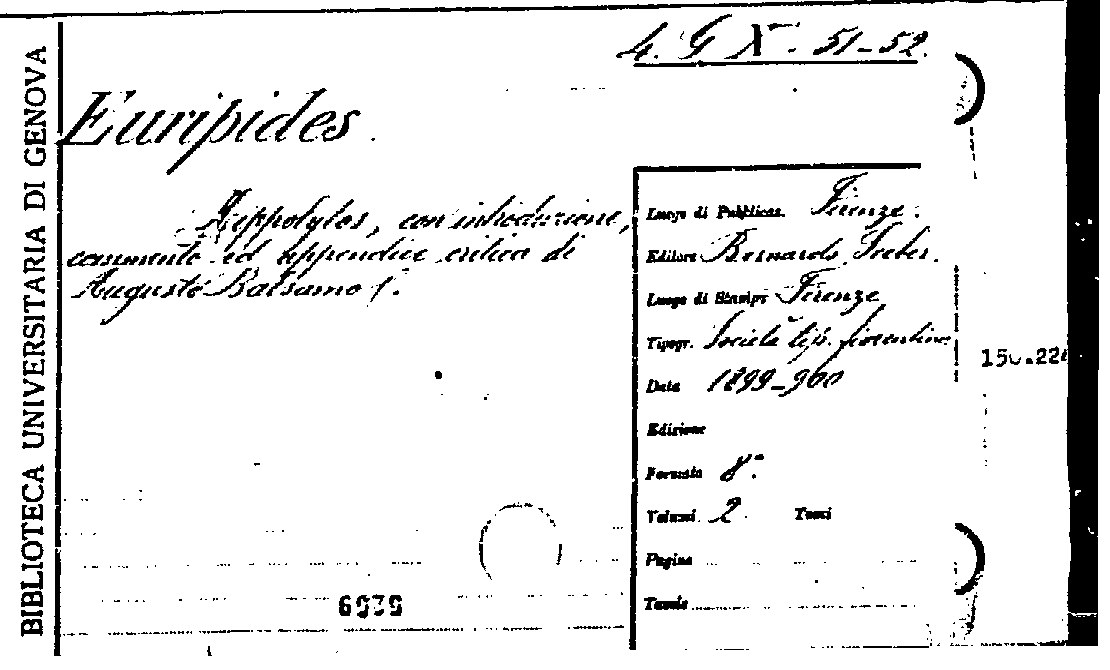 BIBLIOTECA UNIVERSITARIA DI GENOVA
4. G X. 51-52.
Euripides
Hippolytos, con introduzione,
commento ed appendice critica di
Augusto Balsamo
Luogo di Pubblicaz. Firenze.
Editore Bernardo Seeber.
Luogo di Stampa Firenze
Tipogr. Società tip. fiorentina
Data 1899-900
Edizione
Formato 8°.
Volumi 2 Tomi
Pagine
Tavole
6939